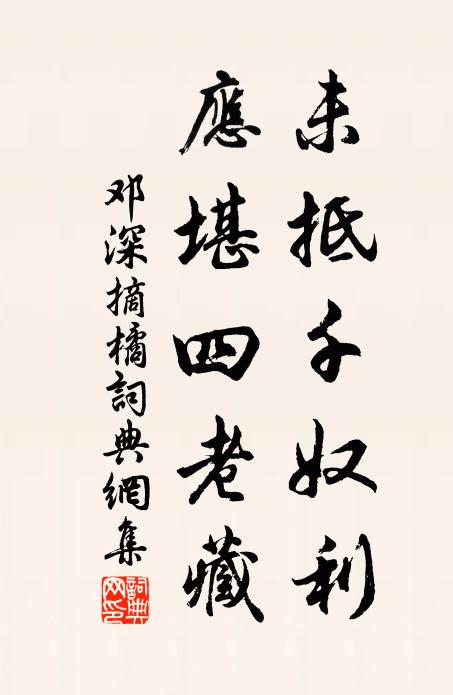 未抵千奴利
應堪四老藏
邓深摘橘詞典網集
詞典
网印